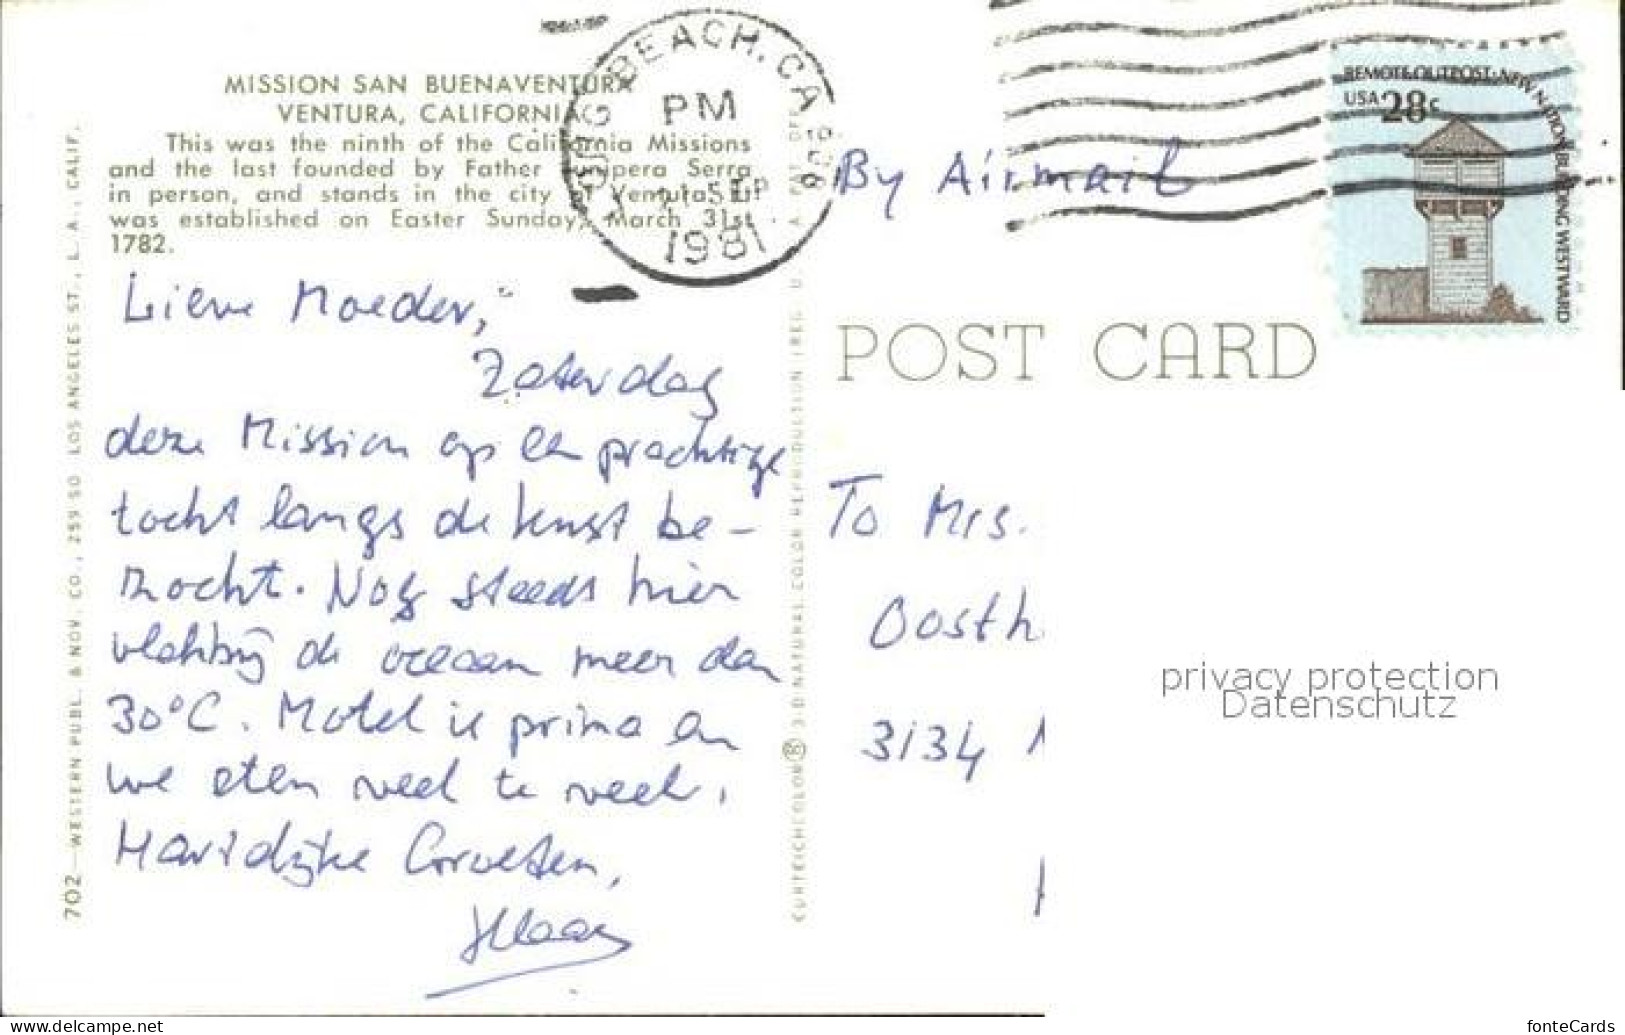 MISSION SAN BUENAVENTURA
VENTURA, CALIFORNIA
This was the ninth of the California Missions
and the last founded by Father Junipera Serra
in person, and stands in the city of Ventura. It
was established on Easter Sunday, March 31st
1782.
Lieve Moeder,
Zaterdag
deze Mission op een prachtige
tocht langs de kust be-
zocht. Nog steeds hier
vlakbij de oceaan meer dan
30°C. Motel is prima en
we eten veel te veel.
Hartelijke Groeten,
702—WESTERN PUBL. & NOV. CO., 259 SO. LOS ANGELES ST., L. A., CALIF.
CURTEICHCOLOR® 3-D NATURAL COLOR REPRODUCTION (REG. U. S. A. PAT. OFF.
LONG BEACH, CA 908
PM
SEP
1981
REMOTE OUTPOST: NEW NATION BUILDING WESTWARD
USA 28c
By Airmail
POST CARD
To Mrs.
Oosth
3134
privacy protection
Datenschutz
www.delcampe.net
fonteCards